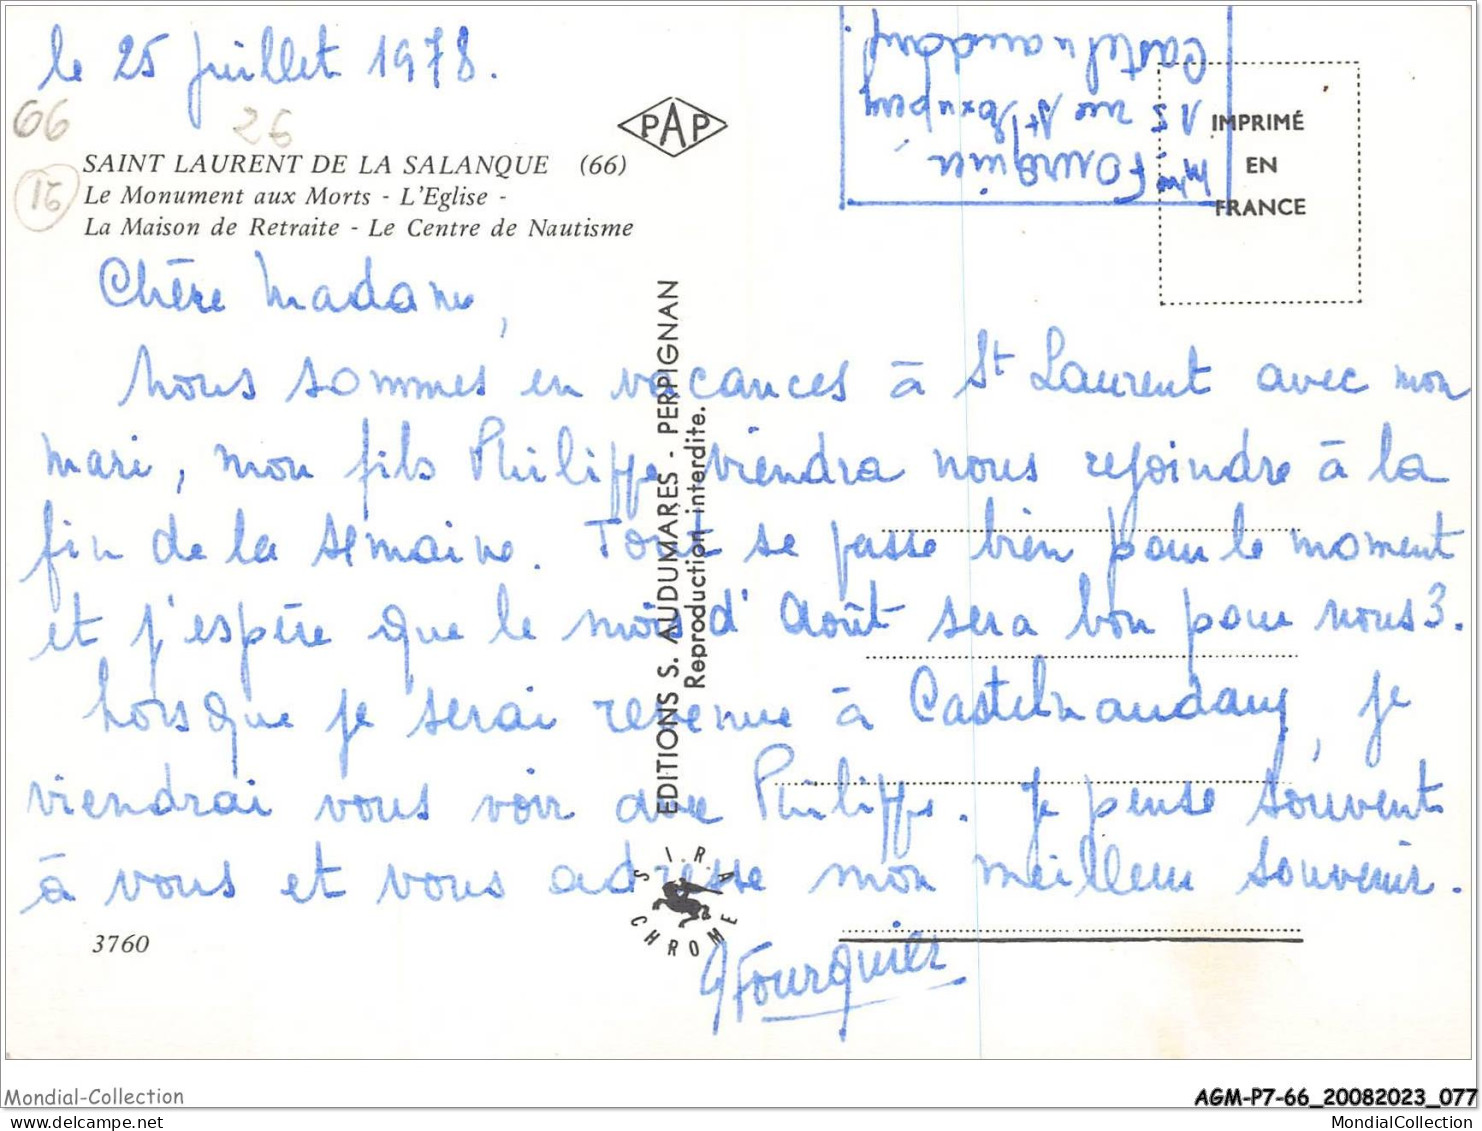 le 25 juillet 1978.
66
26
16
PAP
SAINT LAURENT DE LA SALANQUE (66)
Le Monument aux Morts - L'Eglise -
La Maison de Retraite - Le Centre de Nautisme
Mme Fourquier
15 rue St Exupery
Castelnaudary.
IMPRIMÉ
EN
FRANCE
Chère Madame,
Nous sommes en vacances à St Laurent avec mon
mari, mon fils Philippe viendra nous rejoindre à la
fin de la semaine. Tout se passe bien pour le moment
et j'espère que le mois d'Août sera bon pour nous 3.
Lorsque je serai revenue à Castelnaudary, je
viendrai vous voir avec Philippe. Je pense souvent
à vous et vous adresse mon meilleur souvenir.
Fourquier
EDITIONS S. AUDUMARES - PERPIGNAN
Reproduction interdite.
S.I.R.A.
CHROME
3760
Mondial-Collection
AGM-P7-66_20082023_077
Mondial-Collection.com
MondialCollection